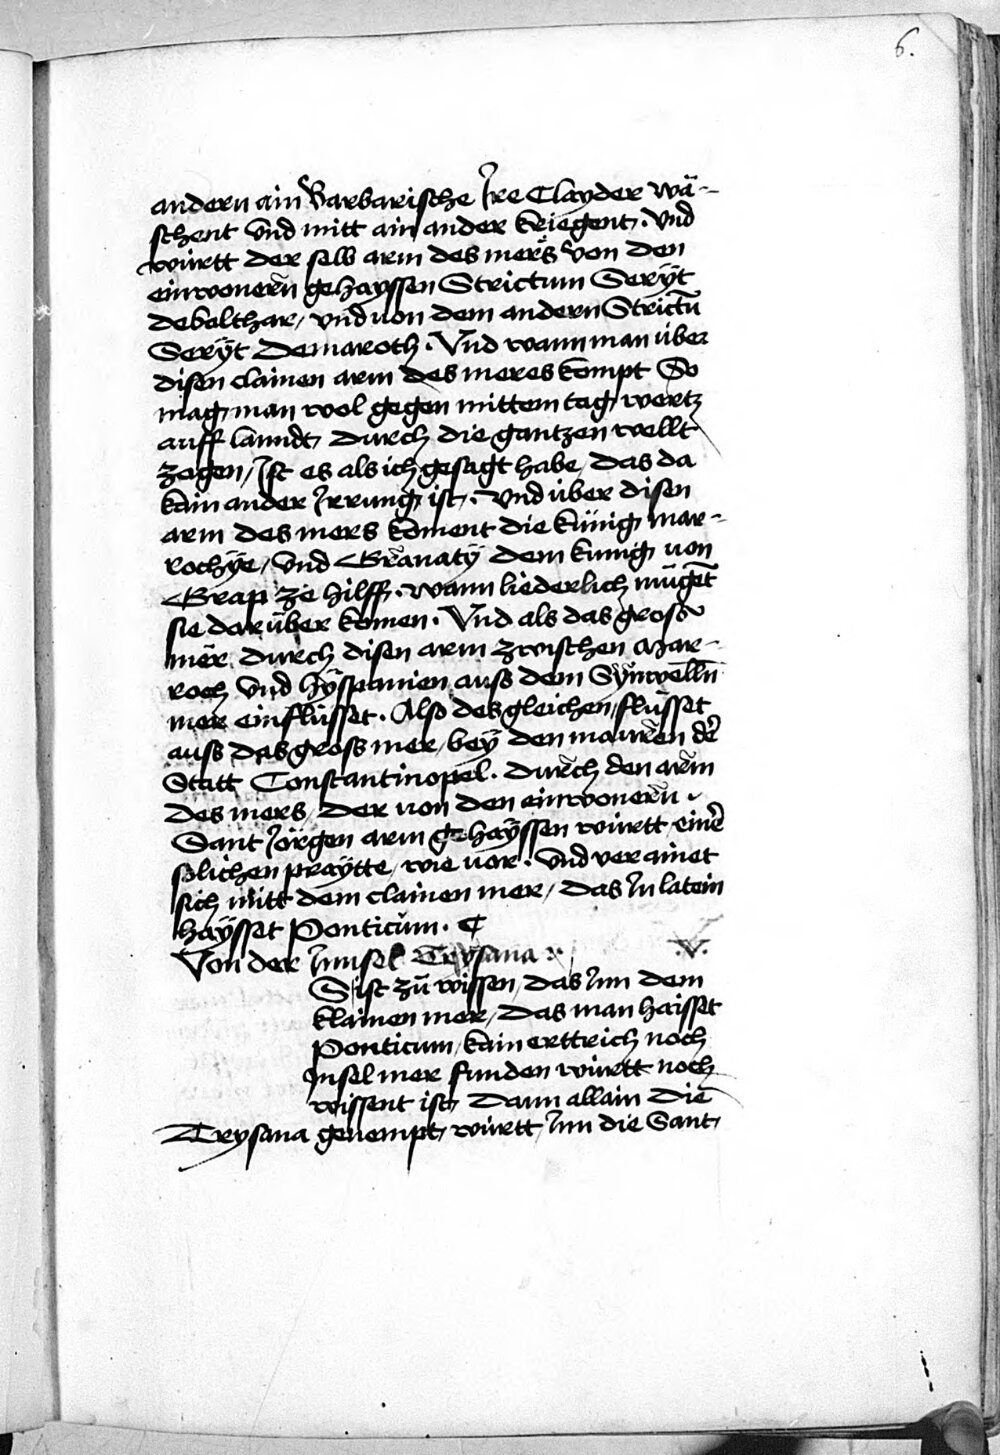 6.
andern ain Barbarische Ire Clayder wä-
schent vnd mitt ain ander kriegent. vnd
württ der selb arm des mers von den
einwonern gehayssen Strictum Serÿt
debalthar, vnd von dem andern Strictū
Serÿt Demaroth. Vnd wann man über
disen clainen arm des meres kompt So
mag man wol gegen mittem tag wertz
auff lanndt durch die gantzen wellt
zogen, Ist es als ich gesagt habe, das da
kain ander Irrung ist. Vnd über disen
arm des mers koment die künig Mar-
rochÿe, vnd Granatÿ dem kunig von
Grap ze hilff. wann liederlich mügēt
sie darüber komen. Vnd als das gross
mer durch disen arm zwischen Mar-
roch vnd Hÿspanien auss dem Sÿnwelln
mer einflüsset. Also des gleichen flüsset
auss das gross mer, beÿ den mauren dēr
Statt Constantinopel. durch den arm
des mers, der von den einwonern
Sant Jörgen arm gehaÿssen württ, einer
solichen praÿtte, wie vor. Vnd verainet
sich mitt dem clainen mer, das In latein
haÿsset Ponticum.
Von der Innsel Trysana V.
S ist zū wissen, das Inn dem
klainen mer, das man haisset
Ponticum, kain erttrich noch
Insel mer funden württ noch
wissent ist, Dann allain die
Trysana genempt württ, Inn die Sant